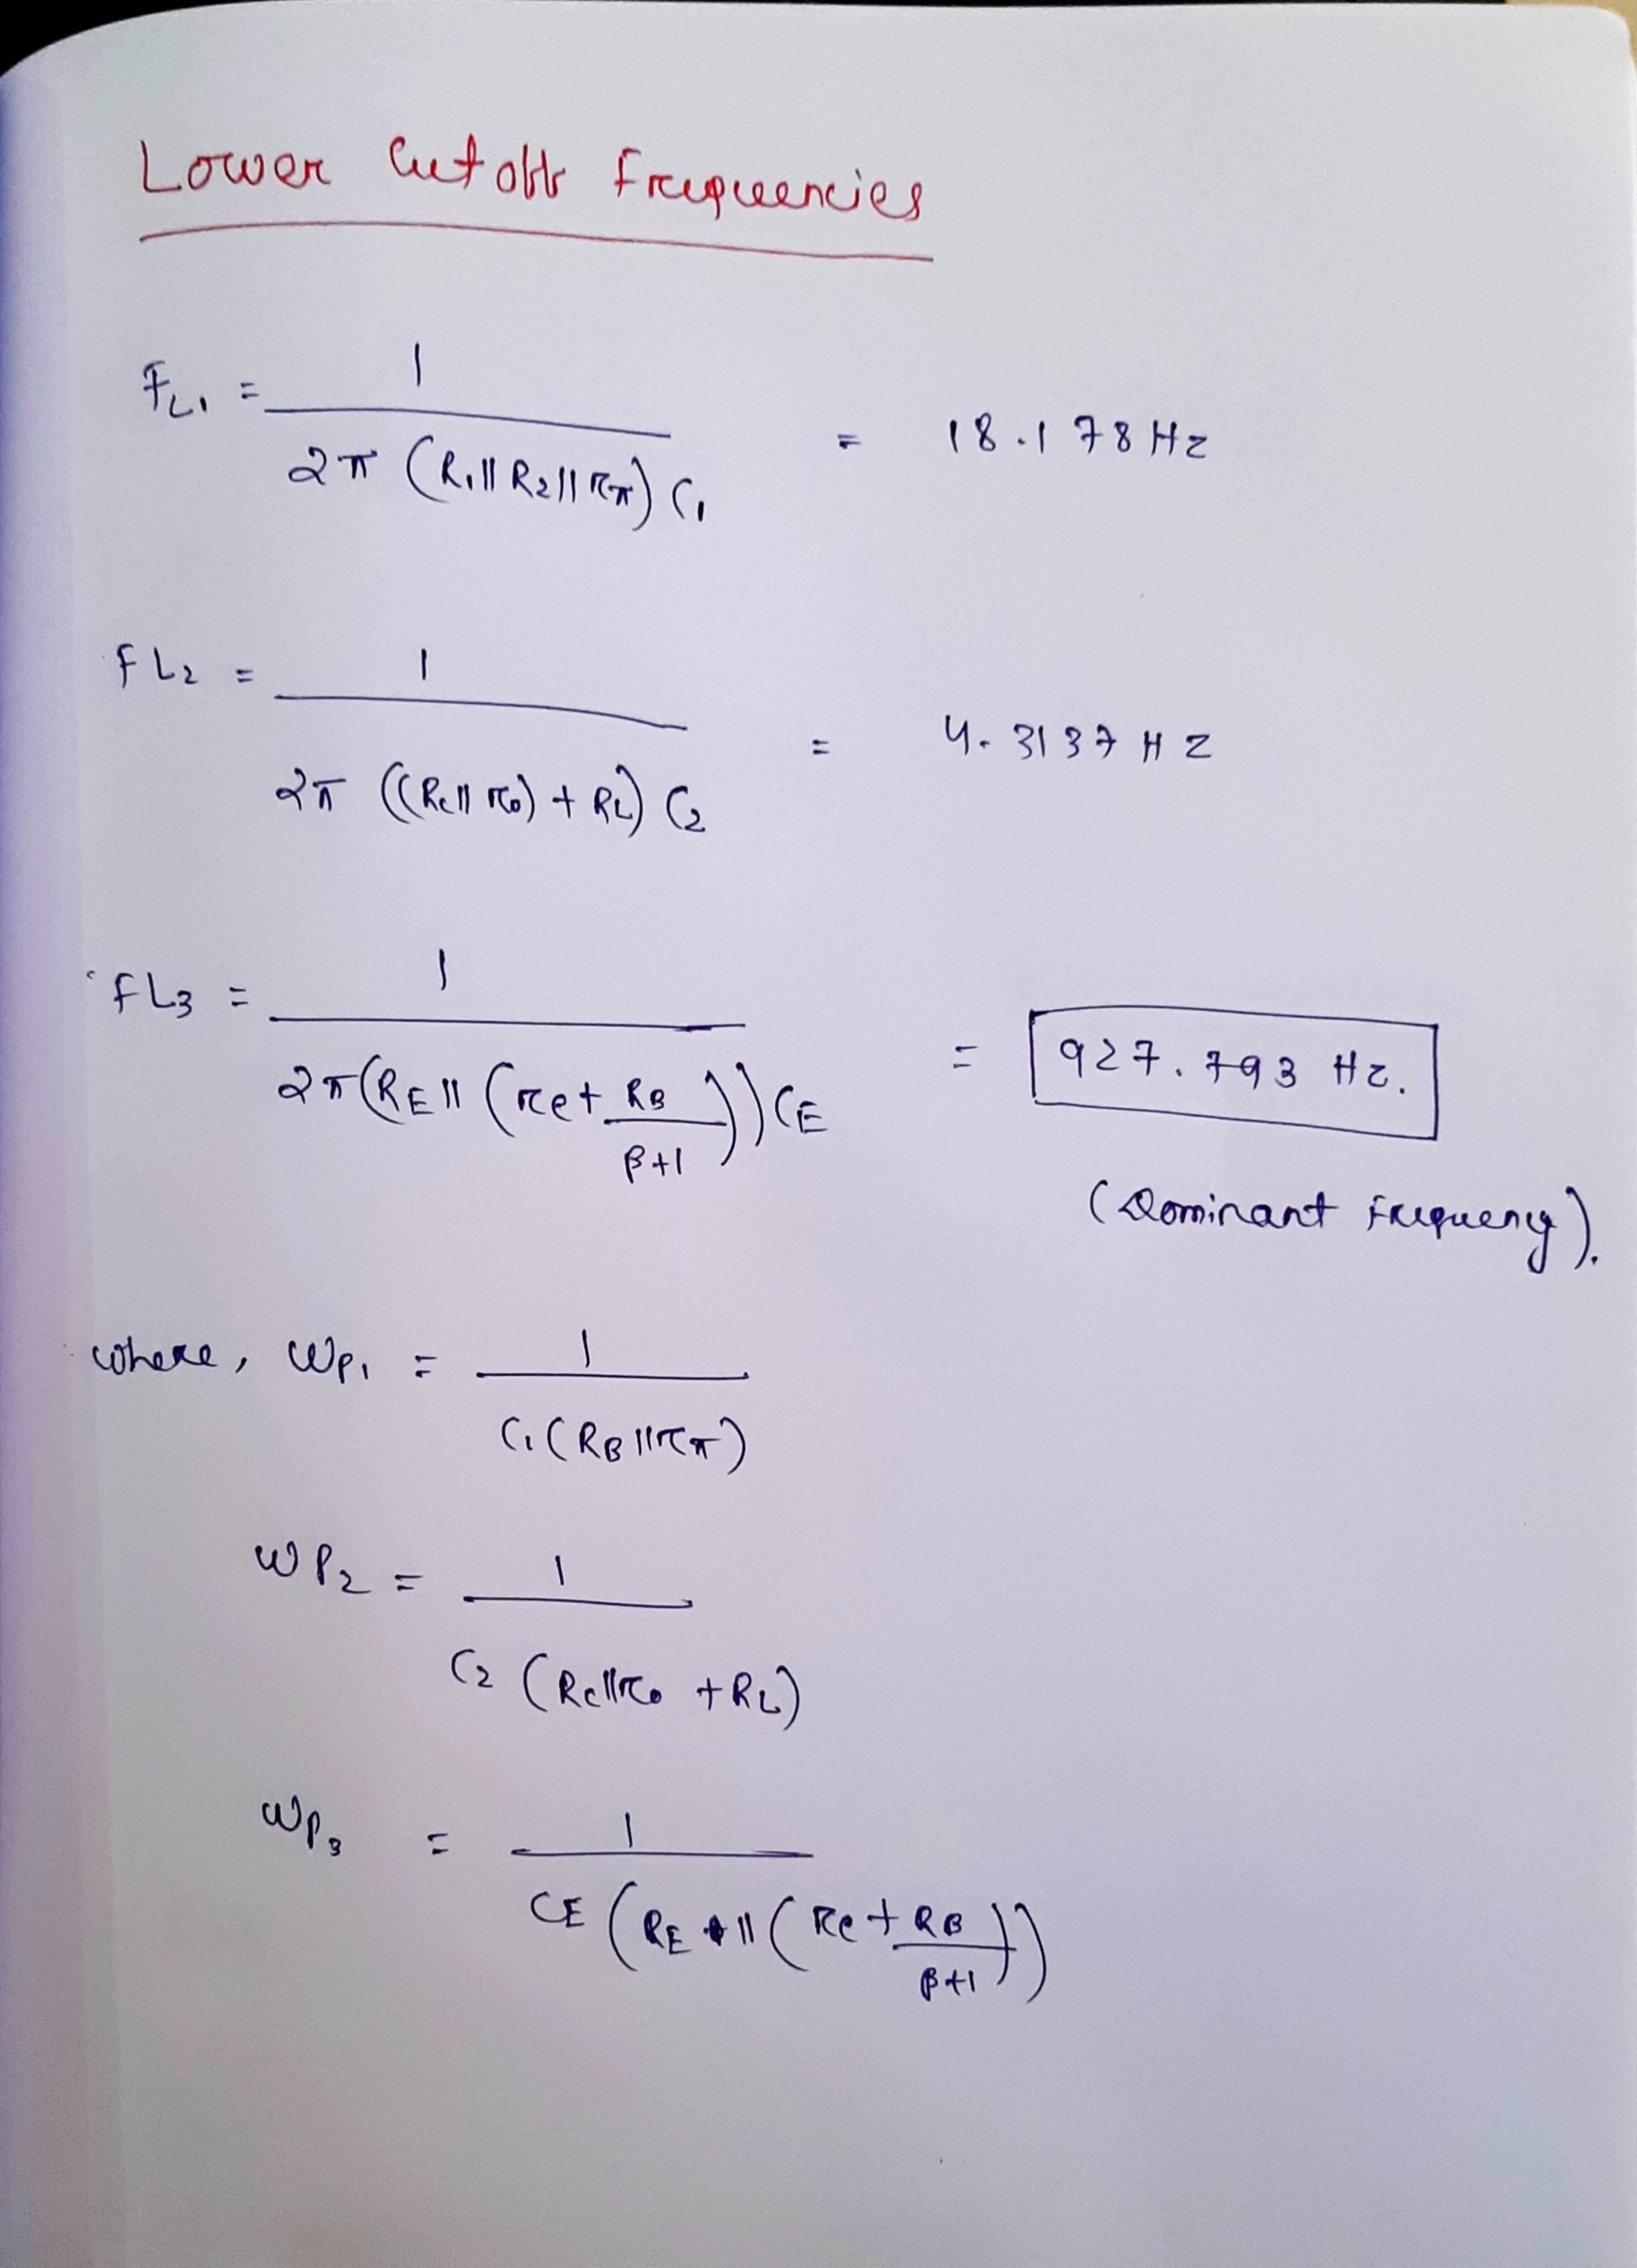 Lower Cutoff Frequencies
F_L1 = 1 / (2π (R1 || R2 || rπ) C1) = 18.178 Hz
FL2 = 1 / (2π ((Rc || ro) + RL) C2) = 4.3137 HZ
FL3 = 1 / (2π (RE || (re + RB / (β+1))) CE) = 927.793 Hz.
(Dominant Frequency).
where, ωP1 = 1 / (C1 (RB || rπ))
ωP2 = 1 / (C2 (Rc || ro + RL))
ωP3 = 1 / (CE (RE || (re + RB / (β+1))))